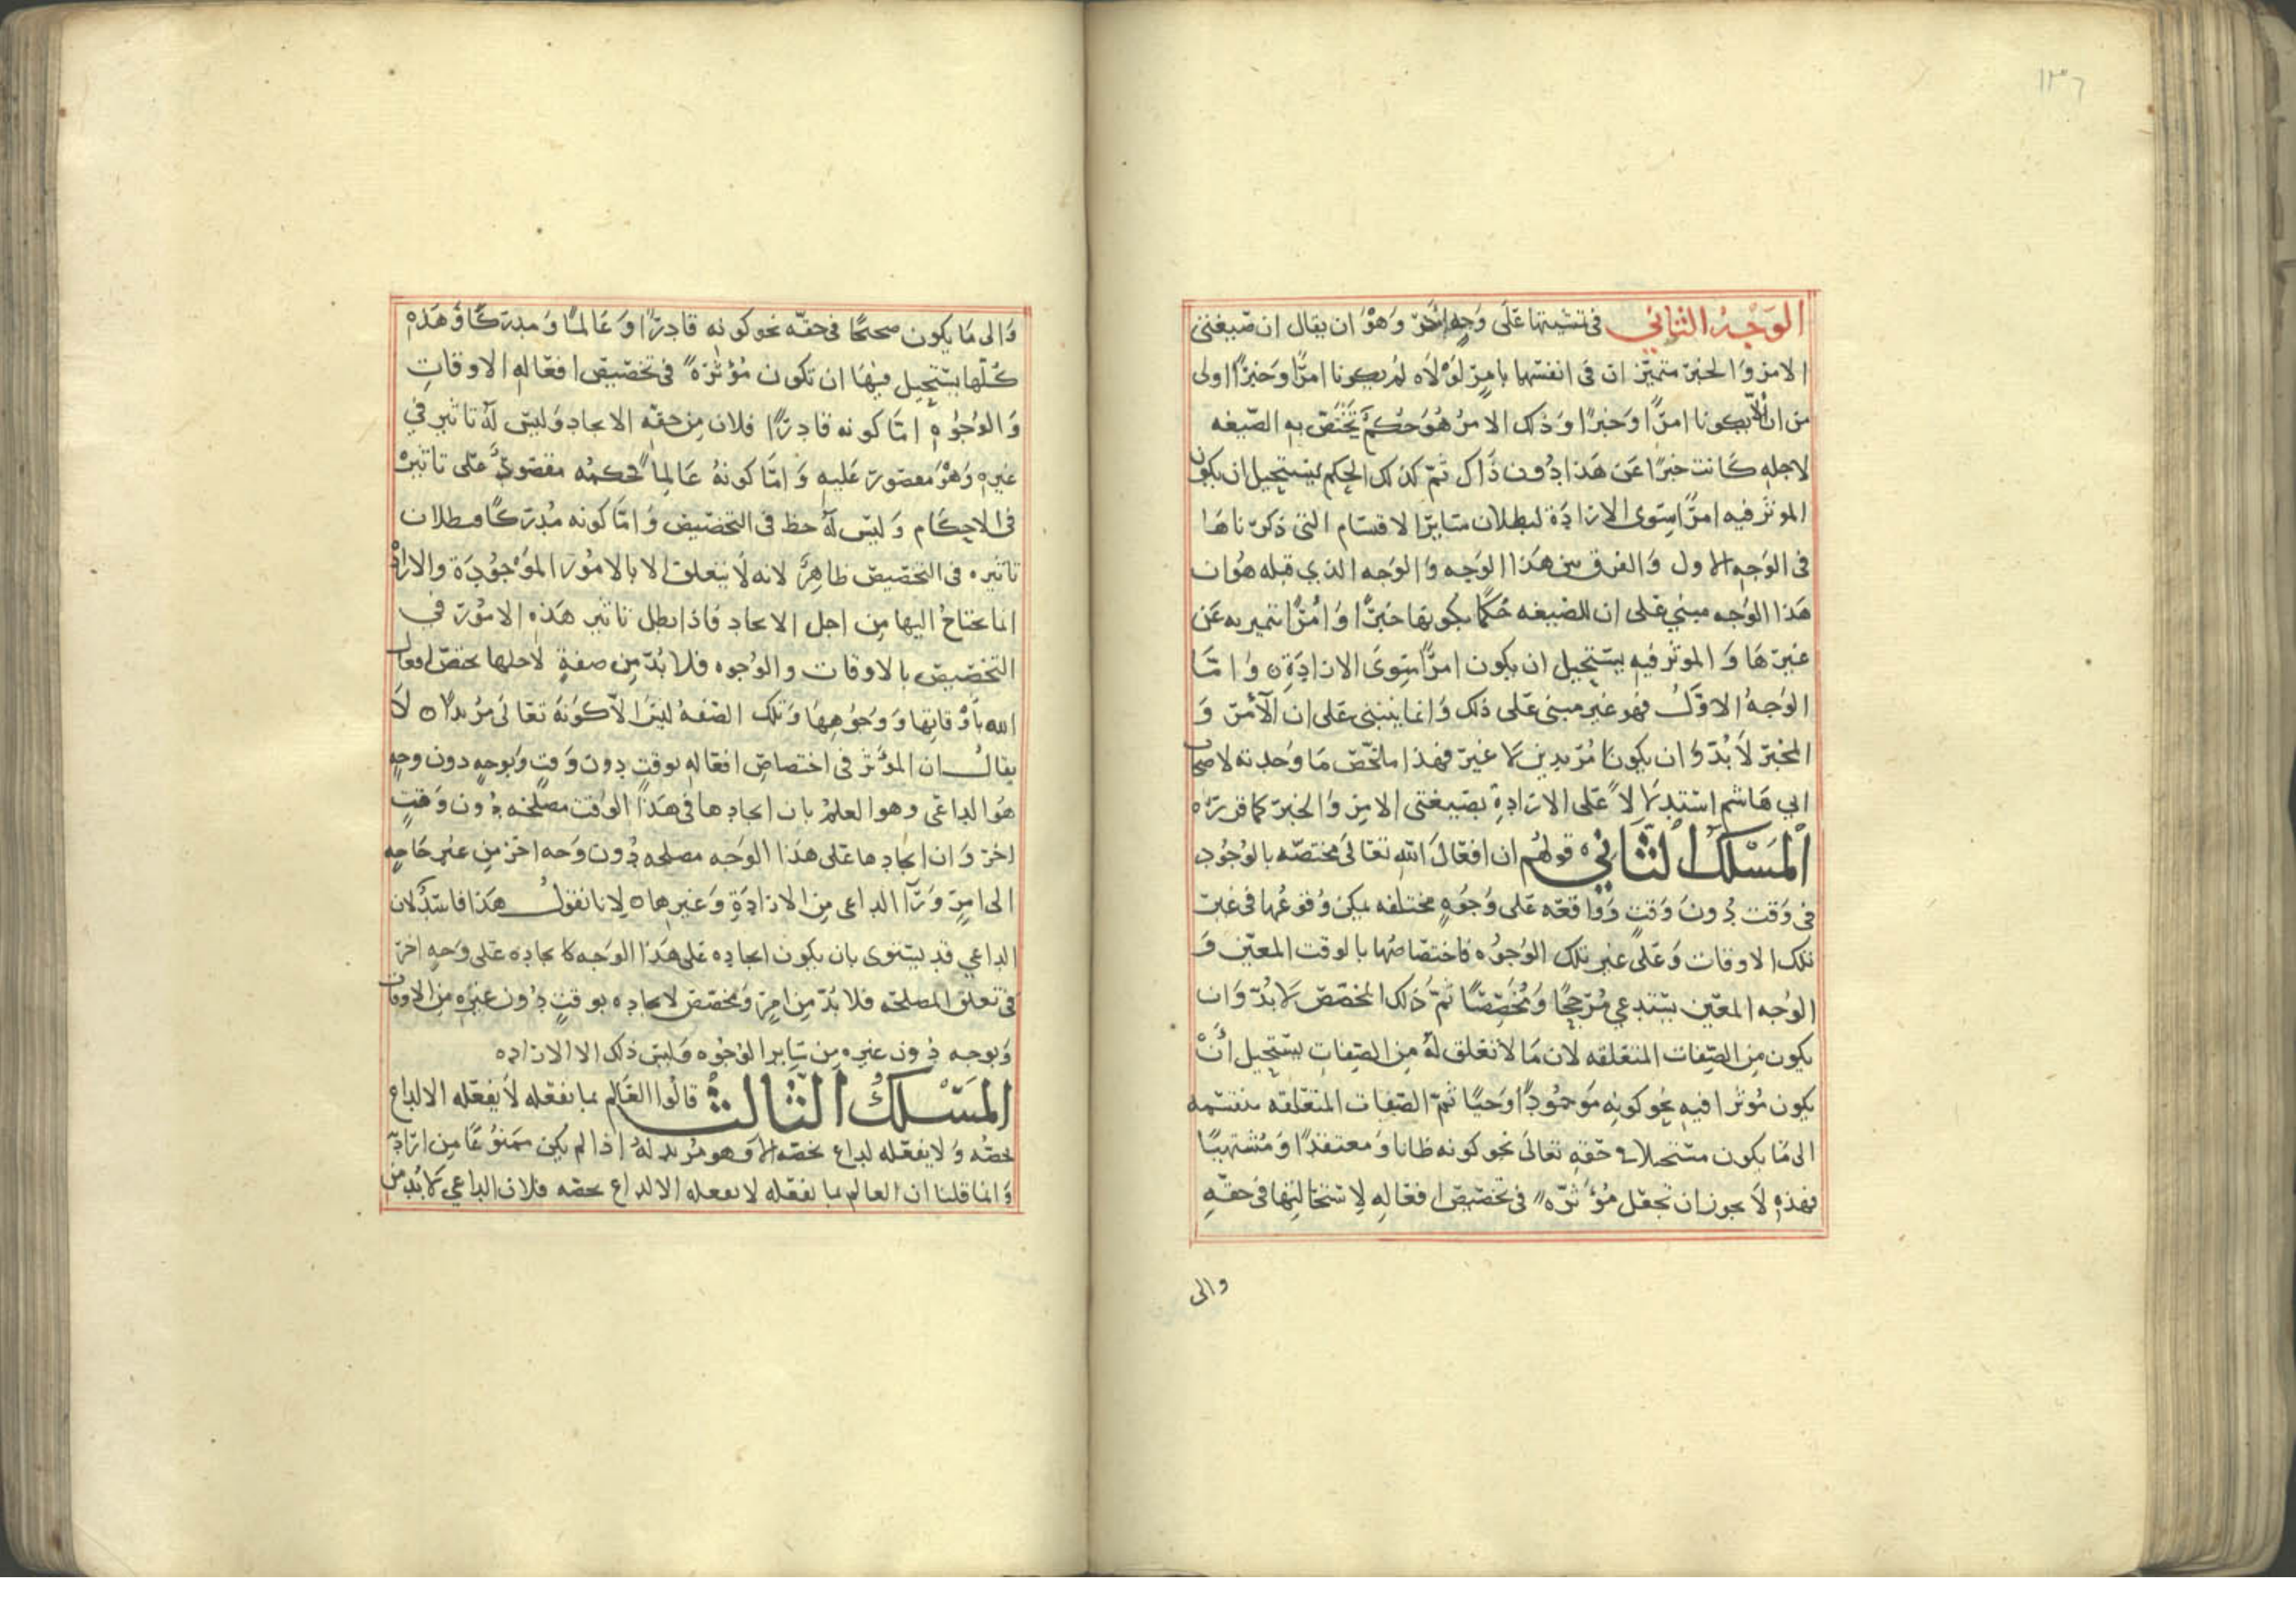 ١٣٦
الوَجْهُ الثاني في تمشيتها عَلَى وَجهٍ اخرَ وَهوَ ان يقال ان صيغتي
الامر وَالخبر متميزان في انفسهما بامرٍ لَوْلَاه لم يكونا امرًا وَخبرًا اولى
من ان لا يكونا امرًا وَخبرًا وَذلك الامرُ هُوَ حُكمٌ تَختَصّ بهِ الصّيغه
لاجله كَانت خبرًا عَن هَذا دُون ذَاك ثمّ كذلك الحكم يستحيل ان يكون
الموثر فيه امرًا سِوى الارادَة لبطلان سَايرَ الاقسَام التي ذكرناهَا
في الوَجهِ الاول وَالفرق بين هَذا الوَجه وَالوَجه الذي قبله هوَ ان
هَذا الوَجه مبني عَلى ان للصّيغه حُكمًا بكونها خبرًا وَامْرًا تتميز به عَن
غيرهَا وَالموثر فيهِ يستحيل ان يكون امرًا سِوَى الارادَةِ ه وَامّا
الوَجهُ الاوّلُ فهو غير مبنى عَلى ذلك وَانما ينبنى عَلى ان الآمرَ وَ
المخبرَ لَا بُدّ وَان يكونَا مُريدين لا غيرَ فهذا ملخّص مَا وَجدته لاصحاب
ابي هَاشم استدلالاً عَلى الارَادةِ بصيغتى الامرِ وَالخبرَ كما قررناه
اَلْمَسْلَكُ الثَّانِي ه قولهُم ان افعَالَ اللهِ تعَالى مختصّه بالوُجُودِ
في وَقت دُونَ وَقتٍ وَوَاقعَه عَلى وُجُوهٍ مختلفه يمكن وُقوعُها في غير
تلك الاوقات وَعَلى غيرِ تلك الوُجُوه فاختصَاصُها بالوقت المعيّن وَ
الوَجه المعيّن يَستدعي مُرَجحًا وَمُخَصِّصًا ثمّ ذلك المخصّص لَا بُدّ وَان
يكون مِن الصِّفات المتعَلقه لان مَا لا تعَلق لَهُ مِن الصِّفاتِ يستحيل أَنْ
يكون مُوثرا فيهِ نحو كونِه مَوجوُدًا وَحَيًّا ثمّ الصّفات المتعَلقه منقسمه
الى مَا يكون مستحيلا في حَقهِ تعَالى نحو كونه ظانا وَمعتقدًا وَمُشتهيًا
فهذهِ لَا يجوز ان تجعَل مُؤثّره في تخصّيص افعَالِهِ لاستحَالتِها في حقّهِ
والى
وَالى مَا يكون صحيحًا في حقّه نحو كونِه قادِرًا وَعَالمًا وَمدركًا وَهَذه
كُلّها يستحيل فيهَا ان تكون مُؤثرَة في تخصّيص افعَالهِ الاوقاتِ
وَالوُجُوه امّا كونه قادِرًا فلان مِن حقّهِ الايجاد وَليسَ لَهُ تاثير في
غيرهِ وَهوَ مقصورٌ عَليهِ وَامّا كونهُ عَالِمًا فحكمُه مقصورٌ عَلى تاثيره
في الاحكَام وَليس لَهُ حظ في التخصيص وَامّا كونه مُدرَكًا فبطلان
تاثيره في التخصيص ظاهِرٌ لانه لَا يتعلق الا بالامُور الموجُودَة والارادة
انما يحتاجُ اليها مِن اجل الايجاد فاذا بطل تاثير هَذه الامُور في
التخصيص بالاوقات والوُجوه فلا بُدّ مِن صفةٍ لاجلها يختصّ افعال
الله بأوقاتِها وَوُجوُهِهَا وَتلك الصّفهُ ليسَ الّا كَونهُ تعَالى مُريدًا ه لَا
يقال ان المؤثر في اختصاص افعَالهِ بوقتٍ دون وَقتٍ وَبوجهٍ دون وجهٍ
هوَ الدّاعى وهو العلمُ بان ايجادها في هَذا الوَقت مصلحَه دُون وَقتٍ
اخر وَان ايجادها عَلى هَذا الوَجه مصلحه دُون وَجه اخر مِن غيرِ حَاجهٍ
الى امرٍ وَرَآ الداعى مِن الارادَةِ وَغيرها ه لانا نقول هَذا فاسدٌ لان
الداعي قد يستوى بان يكون ايجاده عَلى هَذا الوَجه كايجاده عَلى وَجهٍ اخر
في تعلق المصلحه فلا بُدّ مِن امرٍ وَمخصّص لايجاده بوقتٍ دُون غيره مِن الاوقات
وَبوجه دُون غيره مِن سَاير الوُجُوه وَليسَ ذلك الا الاراده
اَلمَسْلَكُ الثَّالث ه قالُوا العَالِم بما يفعَله لَا يفعَله الا لداعٍ
يخصّه وَلا يفعَله لداع يخصّه الا وَهو مُريد لهُ اذا لم يكن ممنوُعًا مِن ارَادته
وَانما قلنا ان العَالم بما يفعَله لا يفعله الا لداعٍ يخصّه فلان الداعي لَا بُد مِن